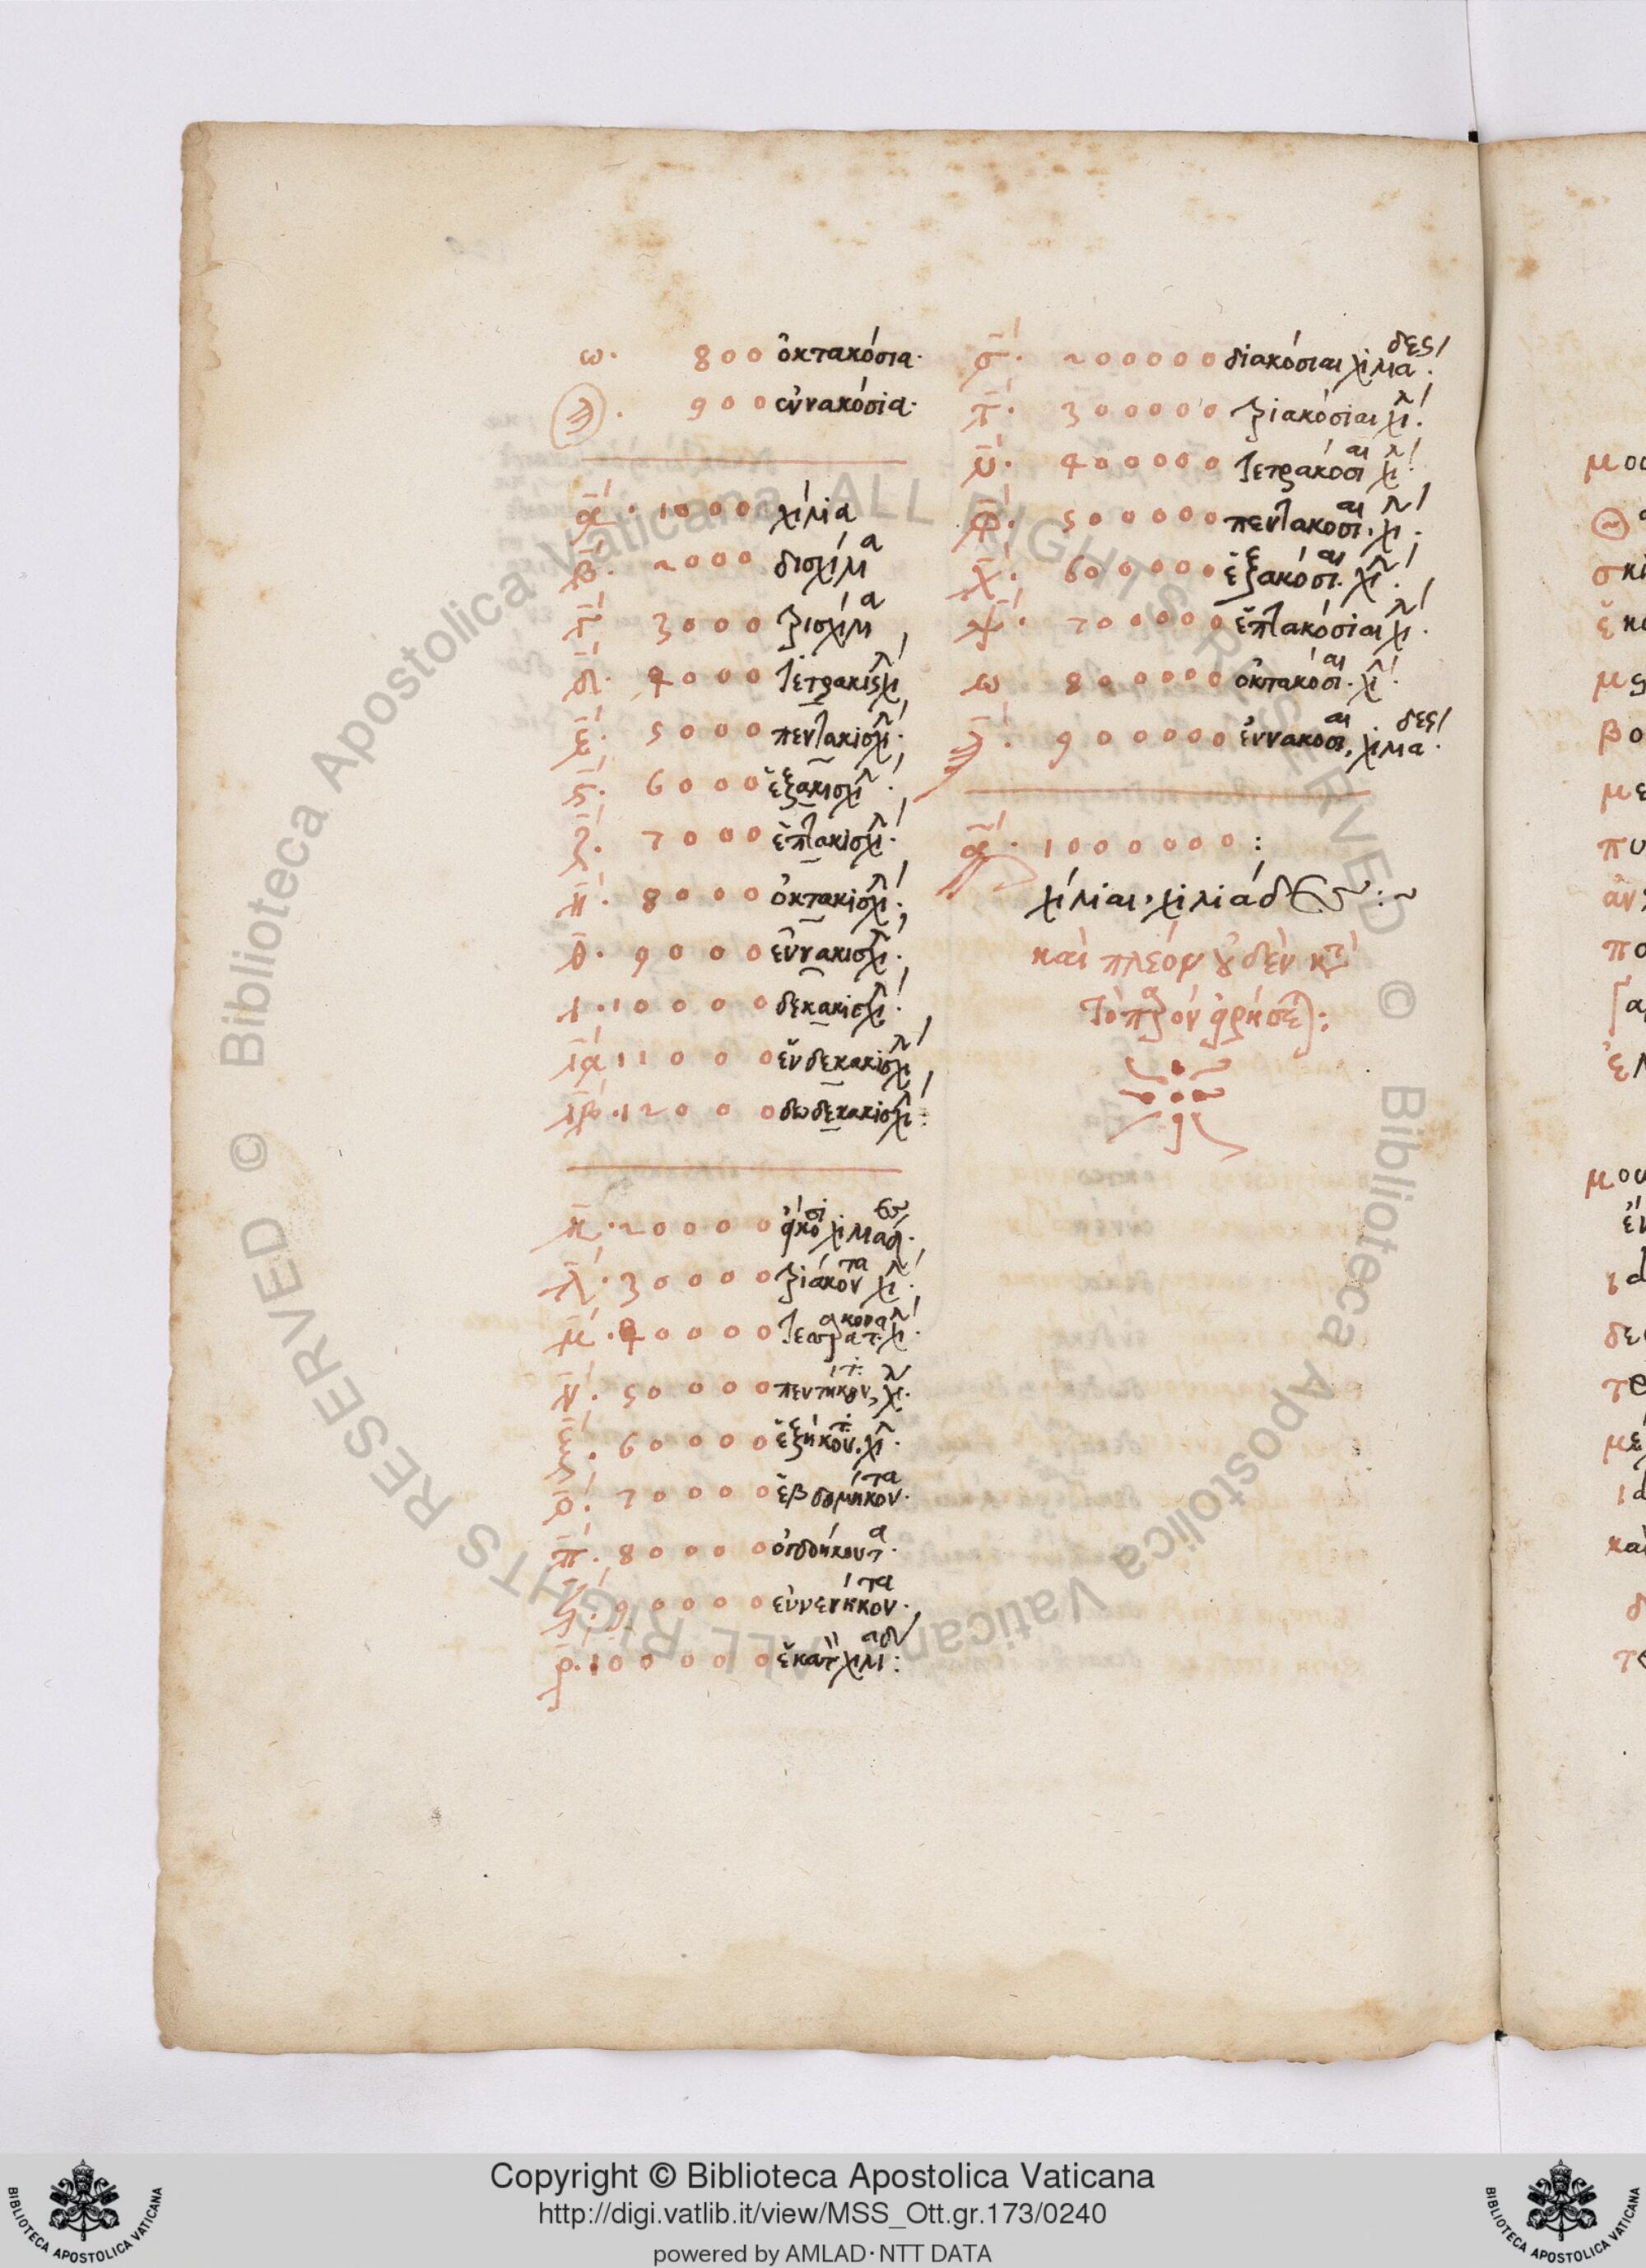 ω. 800 ὀκτακόσια.
ϡ. 900 ἐννακόσια.
͵α. 1000 χίλια
͵β. 2000 δισχίλια
͵γ. 3000 τρισχίλια
͵δ. 4000 τετρακισχι
͵ε. 5000 πεντακισχι.
͵ϛ. 6000 ἑξακισχι.
͵ζ. 7000 ἑπτακισχι.
͵η. 8000 ὀκτακισχι.
͵θ. 9000 ἐννακισχι.
͵ι. 10000 δεκακισχι.
͵ια 11000 ἑνδεκακισχι
͵ιβ. 12000 δωδεκακισχι:
͵κ. 20000 εἴκοσι χιλιάδες.
͵λ. 30000 τριάκοντα χι.
͵μ. 40000 τεσσαράκοντα χι.
͵ν. 50000 πεντήκοντ, χι.
͵ξ. 60000 ἑξήκοντ. χι.
͵ο. 70000 ἑβδομήκοντα.
͵π. 80000 ὀγδοήκοντα.
͵ϟ. 90000 ἐννενήκοντα.
͵ρ. 100000 ἑκατὸν χιλιάδ:
͵σ. 200000 διακόσιαι χιλιάδες.
͵τ. 300000 τριακόσιαι χι.
͵υ. 400000 τετρακόσιαι χι.
͵φ. 500000 πεντακόσιαι. χι.
͵χ. 600000 ἑξακόσιαι. χι.
͵ψ. 700000 ἑπτακόσιαι χι.
͵ω 800000 ὀκτακόσιαι. χι.
͵ϡ. 900000 ἐννακόσιαι, χιλιάδες.
͵α. 1000000:
χίλιαι. χιλιάδες:~
καὶ πλέον οὐδὲν
Copyright © Biblioteca Apostolica Vaticana
http://digi.vatlib.it/view/MSS_Ott.gr.173/0240
powered by AMLAD·NTT DATA
BIBLIOTECA APOSTOLICA VATICANA
BIBLIOTECA APOSTOLICA VATICANA
© Biblioteca Apostolica Vaticana ALL RIGHTS RESERVED © Biblioteca Apostolica Vaticana ALL RIGHTS RESERVED